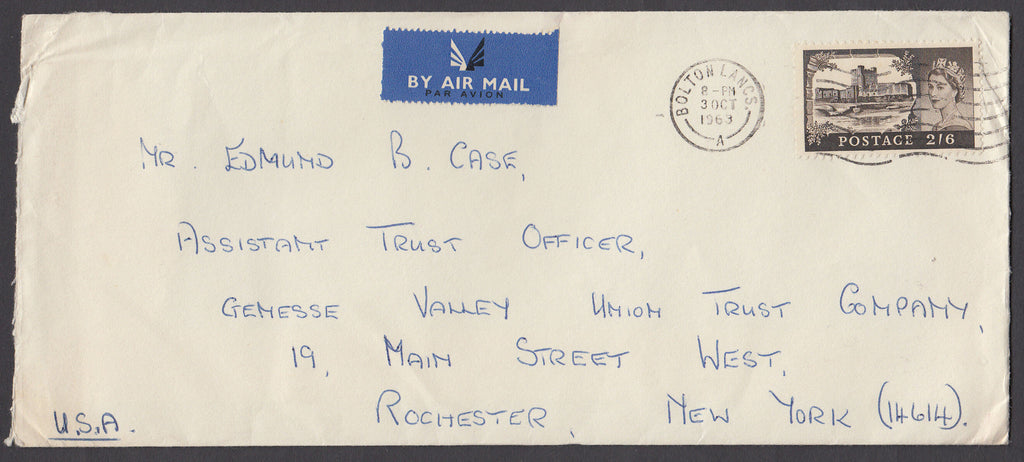 BY AIR MAIL
PAR AVION
BOLTON LANCS.
8-PM
3 OCT
1963
A
POSTAGE 2/6
MR. EDMUND B. CASE,
ASSISTANT TRUST OFFICER,
GENESSE VALLEY UNION TRUST COMPANY,
19, MAIN STREET WEST,
ROCHESTER, NEW YORK (14614).
U.S.A.